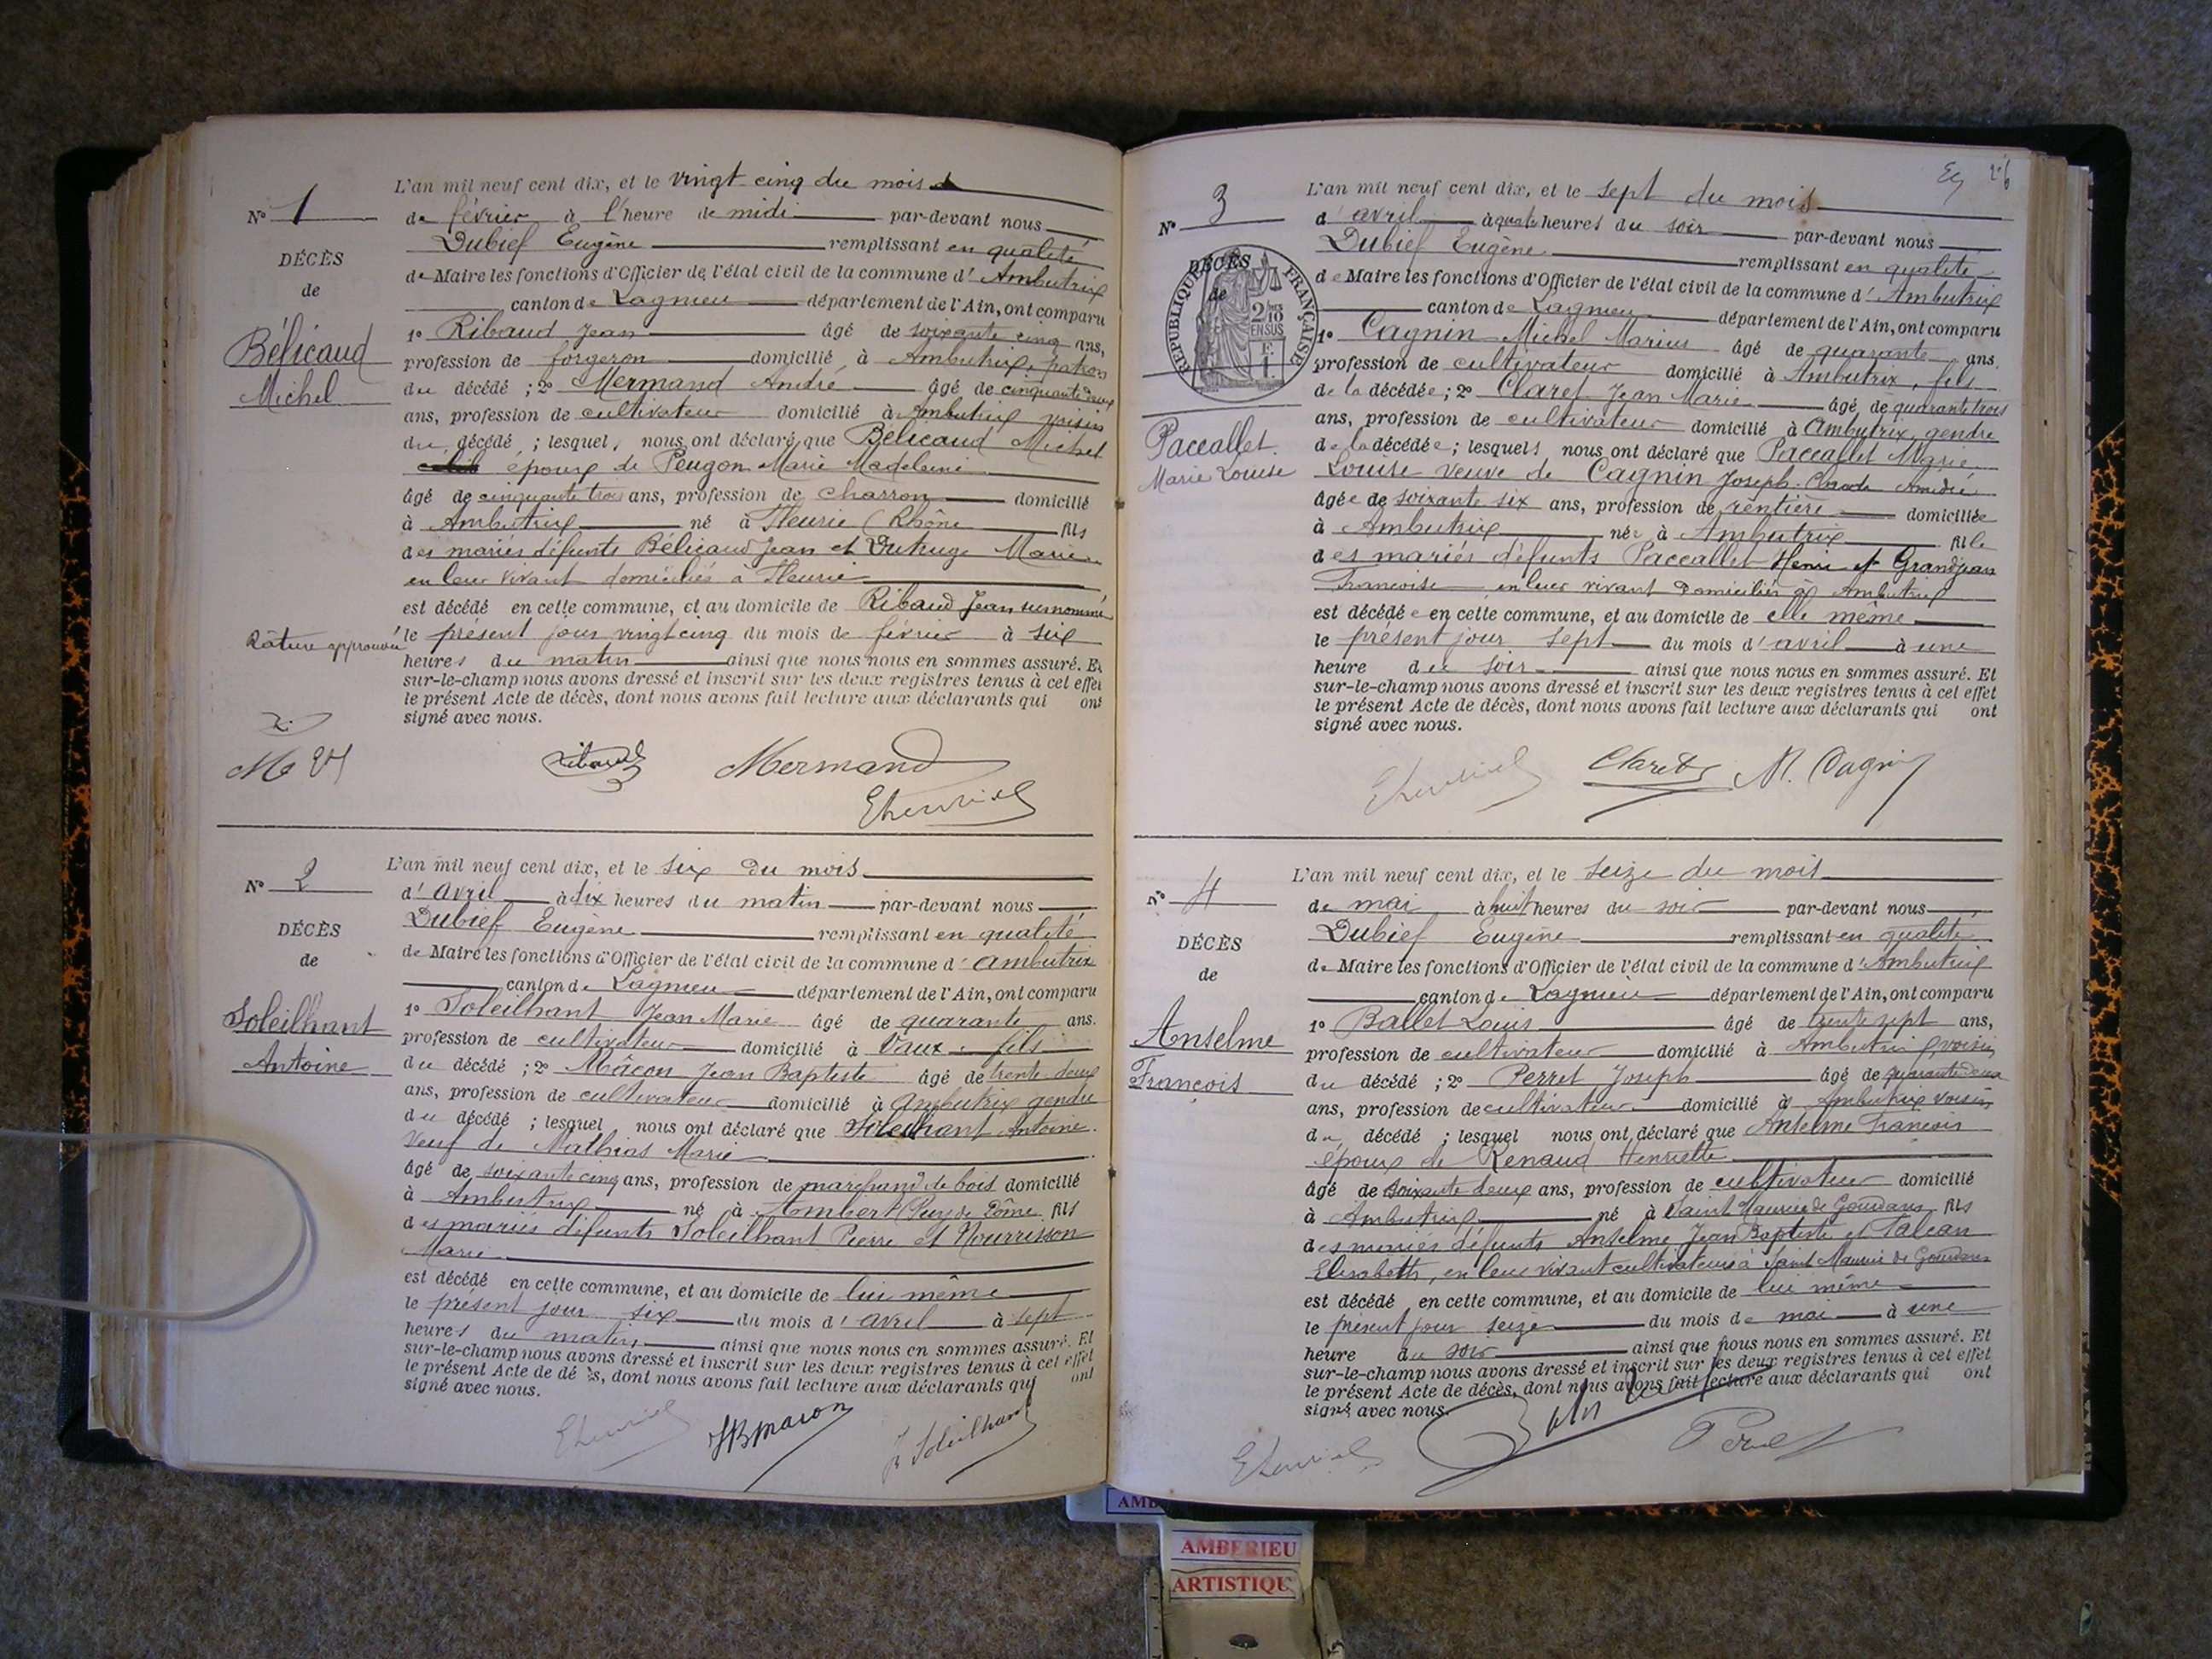 L'an mil neuf cent dix, et le vingt cinq du mois
N° 1
de février à l'heure de midi par-devant nous
Dubief Eugène remplissant en qualité
DÉCÈS
de Maire les fonctions d'Officier de l'état civil de la commune d'Ambutrix
de
canton de Lagnieu département de l'Ain, ont comparu
1° Ribaud Jean âgé de soixante cinq ans,
Bélicaud
profession de forgeron domicilié à Ambutrix, patron
Michel
du décédé ; 2° Mermand André âgé de cinquante deux
ans, profession de cultivateur domicilié à Ambutrix voisin
du décédé ; lesquels nous ont déclaré que Bélicaud Michel
époux de Peugon Marie Madeleine
âgé de cinquante trois ans, profession de charron domicilié
à Ambutrix né à Fleurie (Rhône fils
des mariés défunts Bélicaud Jean et Dutruge Marie
en leur vivant domiciliés à Fleurie
est décédé en cette commune, et au domicile de Ribaud Jean surnommé
Râture approuvée
le présent jour vingt cinq du mois de février à six
heures du matin ainsi que nous nous en sommes assuré. Et
sur-le-champ nous avons dressé et inscrit sur les deux registres tenus à cet effet
le présent Acte de décès, dont nous avons fait lecture aux déclarants qui ont
signé avec nous.
Ribaud Mermand
L'an mil neuf cent dix, et le six du mois
N° 2
d'avril à dix heures du matin par-devant nous
Dubief Eugène remplissant en qualité
DÉCÈS
de Maire les fonctions d'Officier de l'état civil de la commune d'Ambutrix
de
canton de Lagnieu département de l'Ain, ont comparu
Soleilhant
1° Soleilhant Jean Marie âgé de quarante ans.
profession de cultivateur domicilié à Vaux, fils
Antoine
du décédé ; 2° Mâcon Jean Baptiste âgé de trente deux
ans, profession de cultivateur domicilié à Ambutrix gendre
du décédé ; lesquel nous ont déclaré que Soleilhant Antoine
veuf de Mathias Marie
âgé de soixante cinq ans, profession de marchand de bois domicilié
à Ambutrix né à Ambert (Puy de Dôme fils
des mariés défunts Soleilhant Pierre et Nourrisson
Marie
est décédé en cette commune, et au domicile de lui même
le présent jour six du mois d'avril à sept
heures du matin, ainsi que nous nous en sommes assuré. Et
sur-le-champ nous avons dressé et inscrit sur les deux registres tenus à cet effet
le présent Acte de dé s, dont nous avons fait lecture aux déclarants qui ont
signé avec nous.
JB macon J Soleilhant
26
L'an mil neuf cent dix, et le sept du mois
N° 3
d'avril à quatre heures du soir par-devant nous
Dubief Eugène remplissant en qualité
DÉCÈS
de
RÉPUBLIQUE FRANÇAISE
2/10
EN SUS
de Maire les fonctions d'Officier de l'état civil de la commune d'Ambutrix
canton de Lagnieu département de l'Ain, ont comparu
1° Cagnin Michel Marius âgé de quarante ans.
profession de cultivateur domicilié à Ambutrix, fils
de la décédée ; 2° Claret Jean Marie âgé de quarante trois
ans, profession de cultivateur domicilié à Ambutrix, gendre
Paccallet
Marie Louise
de la décédée ; lesquels nous ont déclaré que Paccallet Marie
Louise veuve de Cagnin Joseph
âgée de soixante six ans, profession de rentière domiciliée
à Ambutrix née à Ambutrix fille
des mariés défunts Paccallet Henri et Grandjean
Francoise en leur vivant Domiciliés à Ambutrix
est décédée en cette commune, et au domicile de elle même
le présent jour sept du mois d'avril à une
heure du soir ainsi que nous nous en sommes assuré. Et
sur-le-champ nous avons dressé et inscrit sur les deux registres tenus à cet effet
le présent Acte de décès, dont nous avons fait lecture aux déclarants qui ont
signé avec nous.
Claret M. Cagnin
L'an mil neuf cent dix, et le seize du mois
N° 4
de mai à huit heures du soir par-devant nous
Dubief Eugène remplissant en qualité
DÉCÈS
de Maire les fonctions d'Officier de l'état civil de la commune d'Ambutrix
de
canton de Lagnieu département de l'Ain, ont comparu
1° Ballet Louis âgé de trente sept ans,
Anselme
profession de cultivateur domicilié à Ambutrix voisin
François
du décédé ; 2° Perret Joseph âgé de quarante deux
ans, profession de cultivateur domicilié à Ambutrix voisin
du décédé ; lesquel nous ont déclaré que Anselme François
époux de Renaud Henriette
âgé de soixante deux ans, profession de cultivateur domicilié
à Ambutrix né à Saint Maurice de Gourdans fils
des mariés défunts Anselme Jean Baptiste et
Elisabeth, en leur vivant cultivateurs à Saint Maurice de Gourdans
est décédé en cette commune, et au domicile de lui même
le présent jour seize du mois de mai à une
heure du soir ainsi que nous nous en sommes assuré. Et
sur-le-champ nous avons dressé et inscrit sur les deux registres tenus à cet effet
le présent Acte de décès, dont nous avons fait lecture aux déclarants qui ont
signé avec nous.
Perret
AMBERIEU
ARTISTIQU